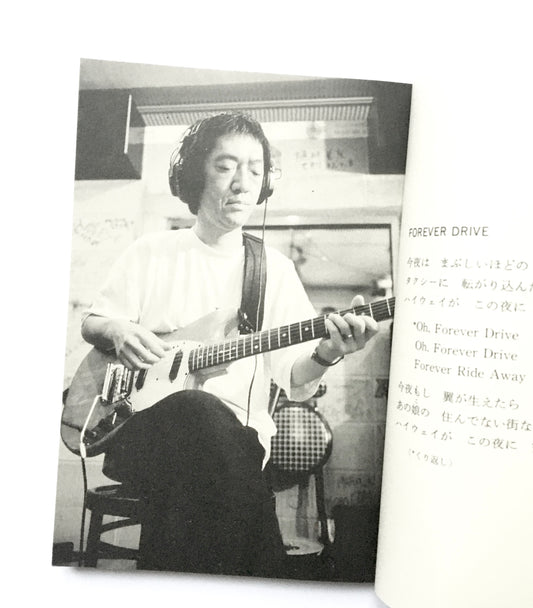 FOREVER DRIVE
今夜は まぶしいほどの
タクシーに 転がり込んだ
ハイウェイが この夜に
*Oh, Forever Drive
Oh, Forever Drive
Forever Ride Away
今夜もし 翼が生えたら
あの娘の 住んでない街な
ハイウェイが この夜に
(*くり返し)